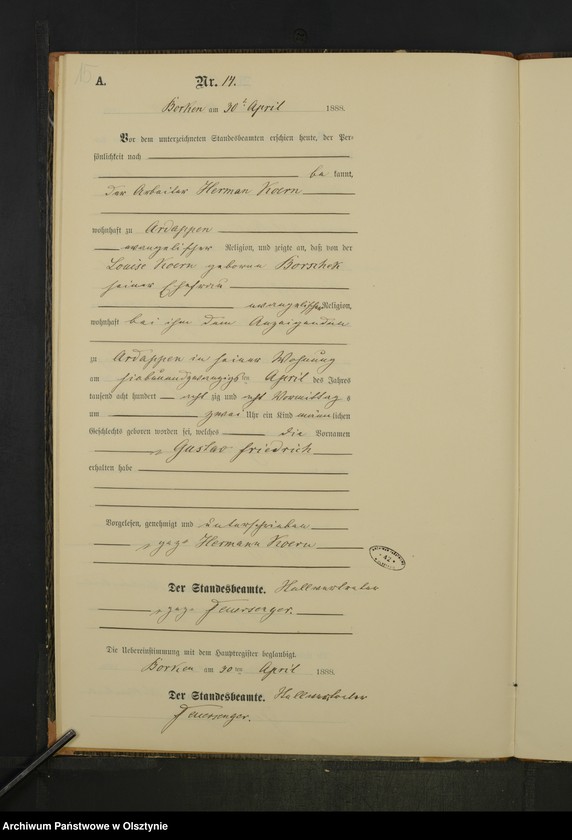 15
A.
Nr. 14.
Borken am 30t April 1888.
Vor dem unterzeichneten Standesbeamten erschien heute, der Per-
sönlichkeit nach
be kannt,
der Arbeiter Herman Koern
wohnhaft zu Ardappen
evangelischer Religion, und zeigte an, daß von der
Louise Koern geborne Borschek
seiner Ehefrau
evangelischer Religion,
wohnhaft bei ihm dem Anzeigenden
zu Ardappen in seiner Wohnung
am siebenundzwanzigsten April des Jahres
tausend acht hundert acht zig und acht Vormittag s
um zwei Uhr ein Kind männlichen
Geschlechts geboren worden sei, welches die Vornamen
Gustav Friedrich
erhalten habe
Vorgelesen, genehmigt und unterschrieben
gez. Hermann Koern
Der Standesbeamte.
gez.
Die Uebereinstimmung mit dem Hauptregister beglaubigt.
Borken am 30ten April 1888.
Der Standesbeamte.
Archiwum Państwowe w Olsztynie